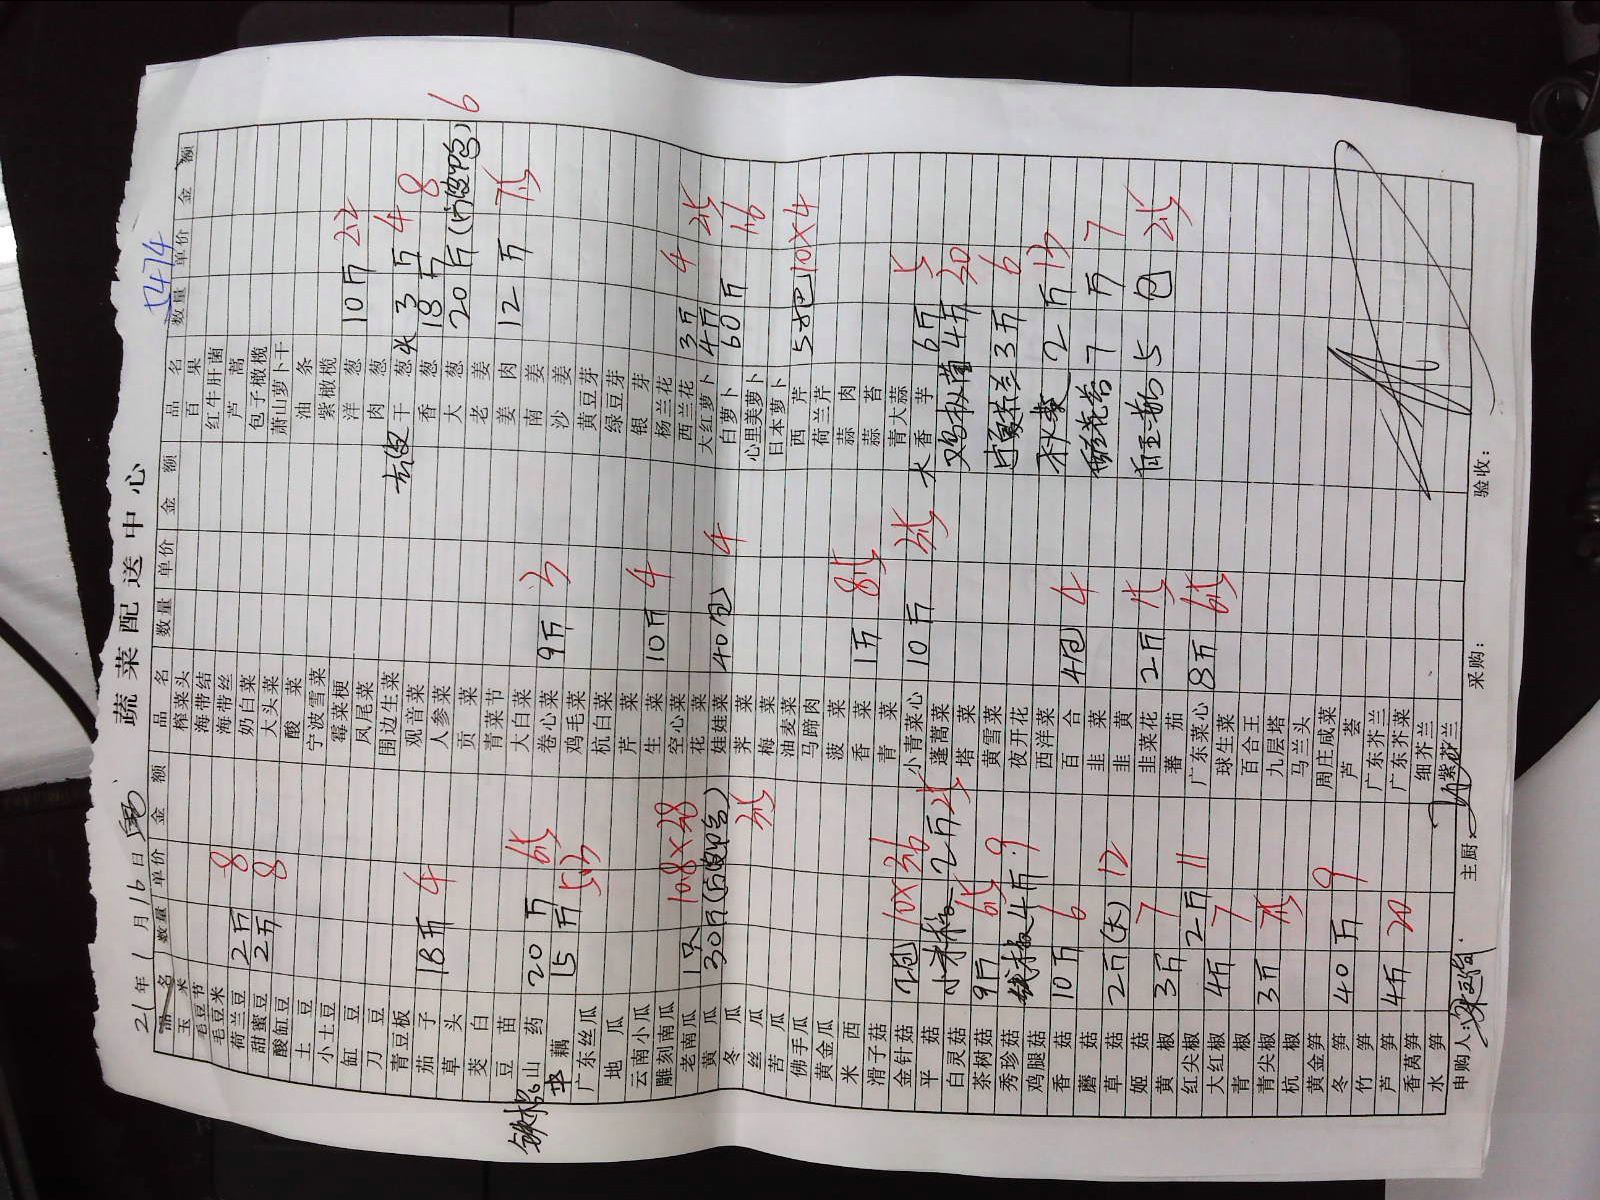 蔬菜配送中心
21年1月16日
5474
品名 数量 单价 金额
玉米
毛豆节
毛豆米
荷兰豆 2斤 8
甜蜜豆 2斤 8
酸缸豆
土豆
小土豆
缸豆
刀豆
青豆板
茄子 18斤 4
草头
茭白
豆苗
铁棍山药 20斤 6.5
藕 15斤 5.3
广东丝瓜
地瓜
云南小瓜
雕刻南瓜
老南瓜 1只 10.8×2.8
黄瓜 30斤
冬瓜
丝瓜 3.5
苦瓜
佛手瓜
黄金瓜
米西
滑子菇
金针菇 2包 10×3.6
平菇
白灵菇 2斤 2.5
茶树菇 9斤 6.5
秀珍菇
鸡腿菇 4斤 9
香菇 10斤 6
蘑菇
草菇 2斤(大) 12
姬菇
黄椒 3斤 7
红尖椒 2斤 11
大红椒 4斤 7
青椒
青尖椒 3斤 7.5
杭椒
黄金笋
冬笋 40斤 9
竹笋
芦笋 4斤 20
香莴笋
水笋
品名 数量 单价 金额
榨菜头
海带结
海带丝
奶白菜
大头菜
酸菜
宁波雪菜
霉菜梗
凤尾菜
围边生菜
观音菜
人参菜
贡菜
青菜节
大白菜
卷心菜 9斤 3
鸡毛菜
杭白菜
芹菜
生菜 10斤 4
空心菜
花菜
娃娃菜 40包 4
荠菜
梅菜
油麦菜
马蹄肉
菠菜
香菜 1斤 8.5
青菜
小青菜心 10斤 3.5
蓬蒿菜
塔菜
黄雪菜
夜开花
西洋菜
百合 4包 4
韭菜
韭黄
韭菜花 2斤
番茄
广东菜心 8斤 6.5
球生菜
百合王
九层塔
马兰头
周庄咸菜
芦荟
广东芥兰
广东芥菜
细芥兰
紫芥兰
品名 数量 单价 金额
百果
红牛肝菌
芦蒿
包子橄榄
萧山萝卜干
油条
紫橄榄
洋葱 10斤 2.2
肉葱
去皮干葱头 3斤 4
香葱 18斤 8
大葱 20斤 6
老姜
姜肉 12斤 7.5
南姜
沙姜
黄豆芽
绿豆芽
银芽
杨兰花
西兰花 3斤 4
大红萝卜 4斤 2.5
白萝卜 60斤 1.6
心里美萝卜
日本萝卜
西芹 5把 10×4
荷兰芹
蒜肉
蒜苔
青大蒜
大香芋 6斤 5
鸡枞菌 4斤 30
3斤 6
秋葵 2斤 13
7斤 7
白玉菇 5包 2.5
申购人:
主厨:
采购:
验收: